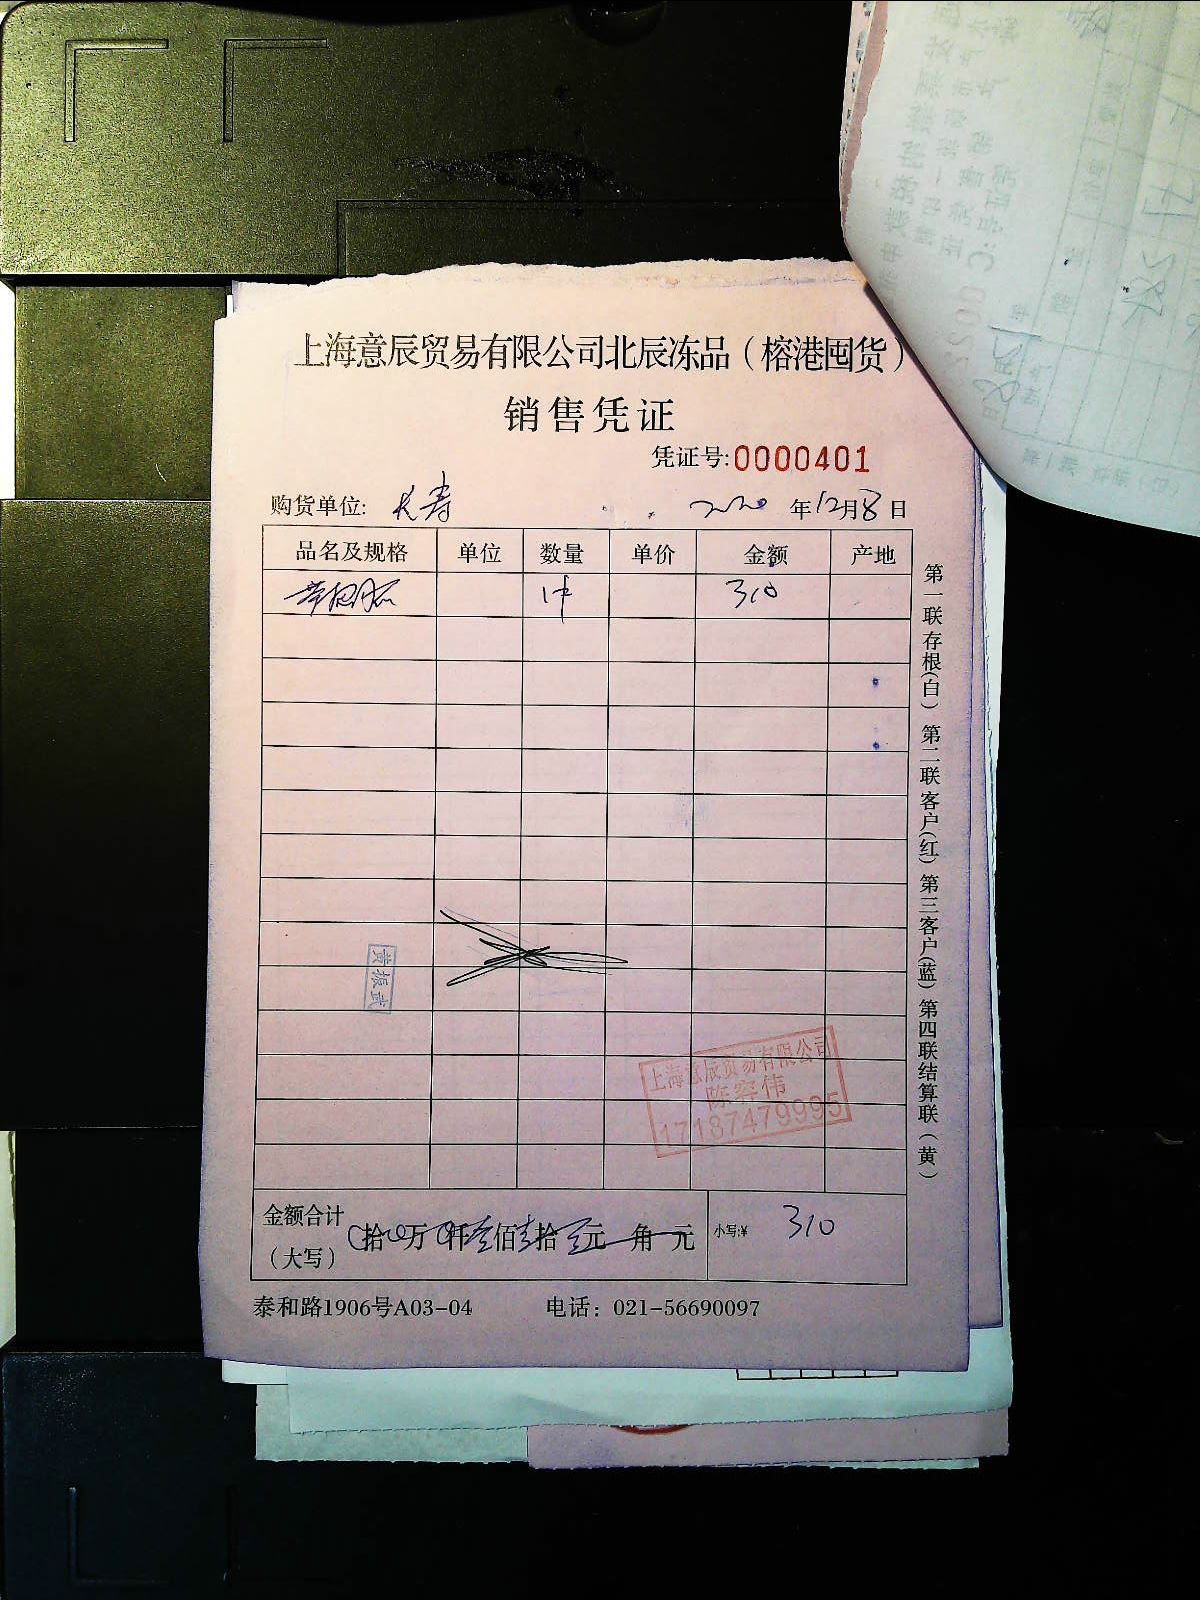 上海意辰贸易有限公司北辰冻品（榕港囤货）
销售凭证
凭证号:0000401
购货单位: 长寿 2020 年12月8日
品名及规格 单位 数量 单价 金额 产地
1件 310
第一联存根(白) 第二联客户(红) 第三客户(蓝) 第四联结算联(黄)
黄振武
上海意辰贸易有限公司
陈容伟
17187479995
金额合计
(大写) 拾 万 仟叁佰壹拾 元 角 元 小写:¥ 310
泰和路1906号A03-04 电话: 021-56690097